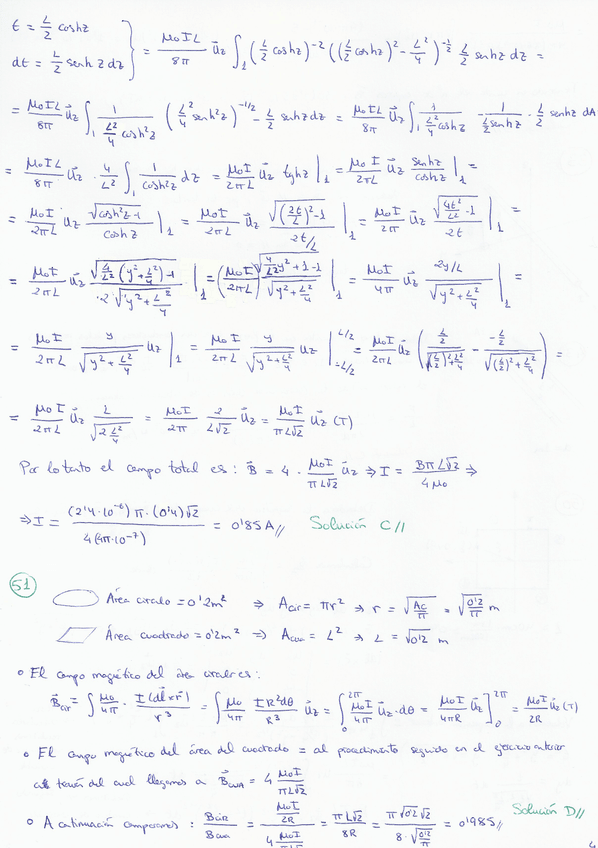 t = L/2 cosh z
dt = L/2 senh z dz } = μ₀IL/8π u⃗z ∫₁ (L/2 cosh z)^-2 ((L/2 cosh z)² - L²/4)^-1/2 L/2 senh z dz =
= μ₀IL/8π u⃗z ∫₁ 1/(L²/4 cosh² z) (L²/4 senh² z)^-1/2 - L/2 senh z dz = μ₀IL/8π u⃗z ∫₁ 1/(L²/4 cosh z) - 1/(L/2 senh z) · L/2 senh z dA
= μ₀IL/8π u⃗z · 4/L² ∫₁ 1/cosh² z dz = μ₀I/2πL u⃗z tgh z |₁ = μ₀I/2πL u⃗z senh z/cosh z |₁ =
= μ₀I/2πL u⃗z √(cosh² z - 1)/cosh z |₁ = μ₀I/2πL u⃗z √((2t/L)² - 1)/(2t/L) |₁ = μ₀I/2πL u⃗z √(4t²/L² - 1)/2t |₁ =
= μ₀I/2πL u⃗z √(4/L² (y² + L²/4) - 1)/(2√(y² + L²/4)) |₁ = (μ₀I/2πL) √(4/L² y² + 1 - 1)/√(y² + L²/4) |₁ = μ₀I/4π u⃗z (2y/L)/√(y² + L²/4) |₁ =
= μ₀I/2πL y/√(y² + L²/4) uz |₁ = μ₀I/2πL y/√(y² + L²/4) uz |^L/2 _-L/2 = μ₀I/2πL u⃗z ((L/2)/√((L/2)² + L²/4) - (-L/2)/√((L/2)² + L²/4)) =
= μ₀I/2πL u⃗z L/√(2 L²/4) = μ₀I/2π 2/(L√2) u⃗z = μ₀I/(πL√2) u⃗z (T)
Por lo tanto el campo total es: B⃗ = 4 · μ₀I/(πL√2) u⃗z ⇒ I = BπL√2/4μ₀ ⇒
⇒ I = (2'4·10^-6) π · (0'4)√2 / 4(4π·10^-7) = 0'85 A // Solución C //
51
Área circulo = 0'2m² ⇒ Acir = πr² ⇒ r = √(Ac/π) = √(0'2/π) m
Área cuadrado = 0'2m² ⇒ Acua = L² ⇒ L = √0'2 m
El campo magnético del área circular es:
B⃗cir = ∫ μ₀/4π · I(dl⃗×r⃗)/r³ = ∫ μ₀/4π IR²dθ/R³ u⃗z = ∫₀^2π μ₀I/4π u⃗z · dθ = μ₀I/4πR u⃗z ]₀^2π = μ₀I/2R u⃗z (T)
El campo magnético del área del cuadrado = al procedimiento seguido en el ejercicio anterior
a través del cual llegamos a B⃗cua = 4 μ₀I/(πL√2)
A continuación comparamos: Bcir/Bcua = (μ₀I/2R)/(4 μ₀I/(πL√2)) = πL√2/8R = π√0'2 √2/(8·√(0'2/π)) = 0'985 // Solución D //